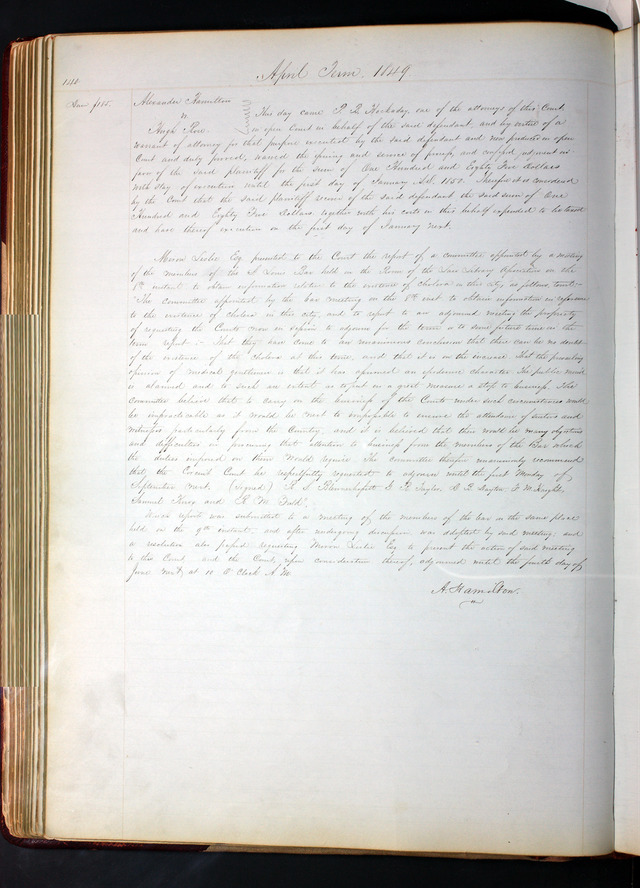 April Term 1849
Alexander Hamilton
vs
Hugh
This day came P. B. Hockaday, one of the attorneys of this Court,
in open Court on behalf of the said defendant, and by virtue of a
warrant of attorney for that purpose executed by the said defendant and now produced in open
Court and duly proved, waived the issuing and service of process, and confessed judgment in
favor of the said plaintiff for the sum of One Hundred and Eighty Five dollars
with stay of execution until the first day of January A.D. 1850. Therefore it is considered
by the Court that the said plaintiff recover of the said defendant the said sum of One
Hundred and Eighty Five dollars together with his costs in this behalf expended to be taxed
and have thereof execution on the first day of January next.
Miron Leslie Esq presented to the Court the report of a committee appointed by a meeting
of the members of the St Louis Bar held in the Room of the Law Library Association on the
8th instant to obtain information relative to the existence of cholera in this city, as follows, to wit:-
"The committee appointed by the bar meeting on the 8th inst to obtain information in reference
to the existence of cholera in this city, and to report to an adjourned meeting the propriety
of requesting the Courts now in session to adjourn for the term or to some future time in the
term report:- That they have come to an unanimous conclusion that there can be no doubt
of the existence of the cholera at this time, and that it is on the increase. That the prevailing
opinion of medical gentlemen is that it has assumed an epidemic character. The public mind
is alarmed and to such an extent as to put in a great measure a stop to business. The
committee believe that to carry on the business of the Courts under such circumstances would
be impracticable as it would be next to impossible to ensure the attendance of jurors and
witnesses particularly from the Country, and it is believed that there would be many objections
and difficulties in procuring that attention to business from the members of the Bar which
the duties imposed on them would require. The committee therefore unanimously recommend
that the Circuit Court be respectfully requested to adjourn until the first Monday of
September next. (Signed) R. S. Blennerhassett, G. R. Taylor, A. P. Gayton, F. M. Haight,
Samuel Knox and R. M. Field."
Which report was submitted to a meeting of the members of the bar in the same place
held on the 9th instant, and after undergoing discussion was adopted by said meeting, and
a resolution also passed requesting Miron Leslie Esq to present the action of said meeting
to this Court, and the Court, upon consideration thereof, adjourned until the fourth day of
June next, at 10 O'Clock A.M.
A. Hamilton.